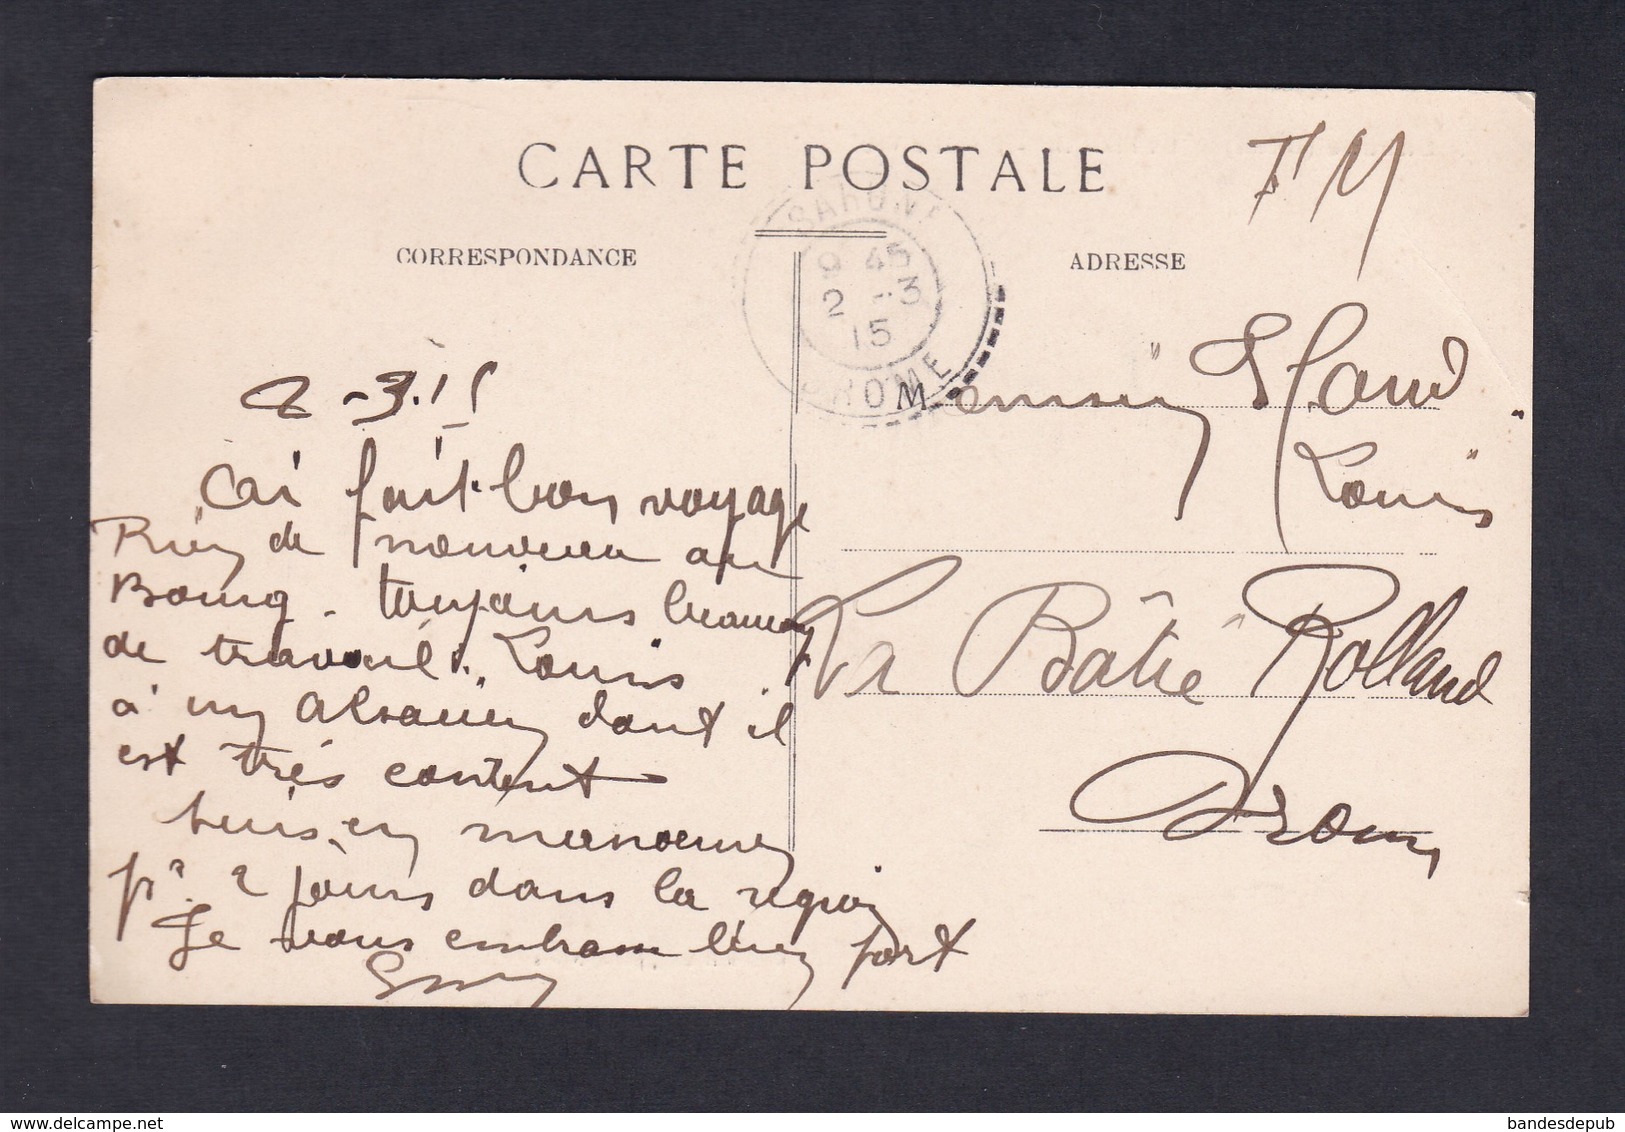 CARTE POSTALE
F M
CORRESPONDANCE
ADRESSE
9 45
2 -3
15
DROME
2 -3.15
ai fait bon voyage
Rien de nouveau au
Bourg. toujours beaucoup
de travail. Louis
à un Alsacien dont il
est très content
suis en manoeuvre
pr 2 jours dans la région
Je vous embrasse bien fort
Monsieur
Louis
La Bâtie Rolland
Drome
bandesdepub